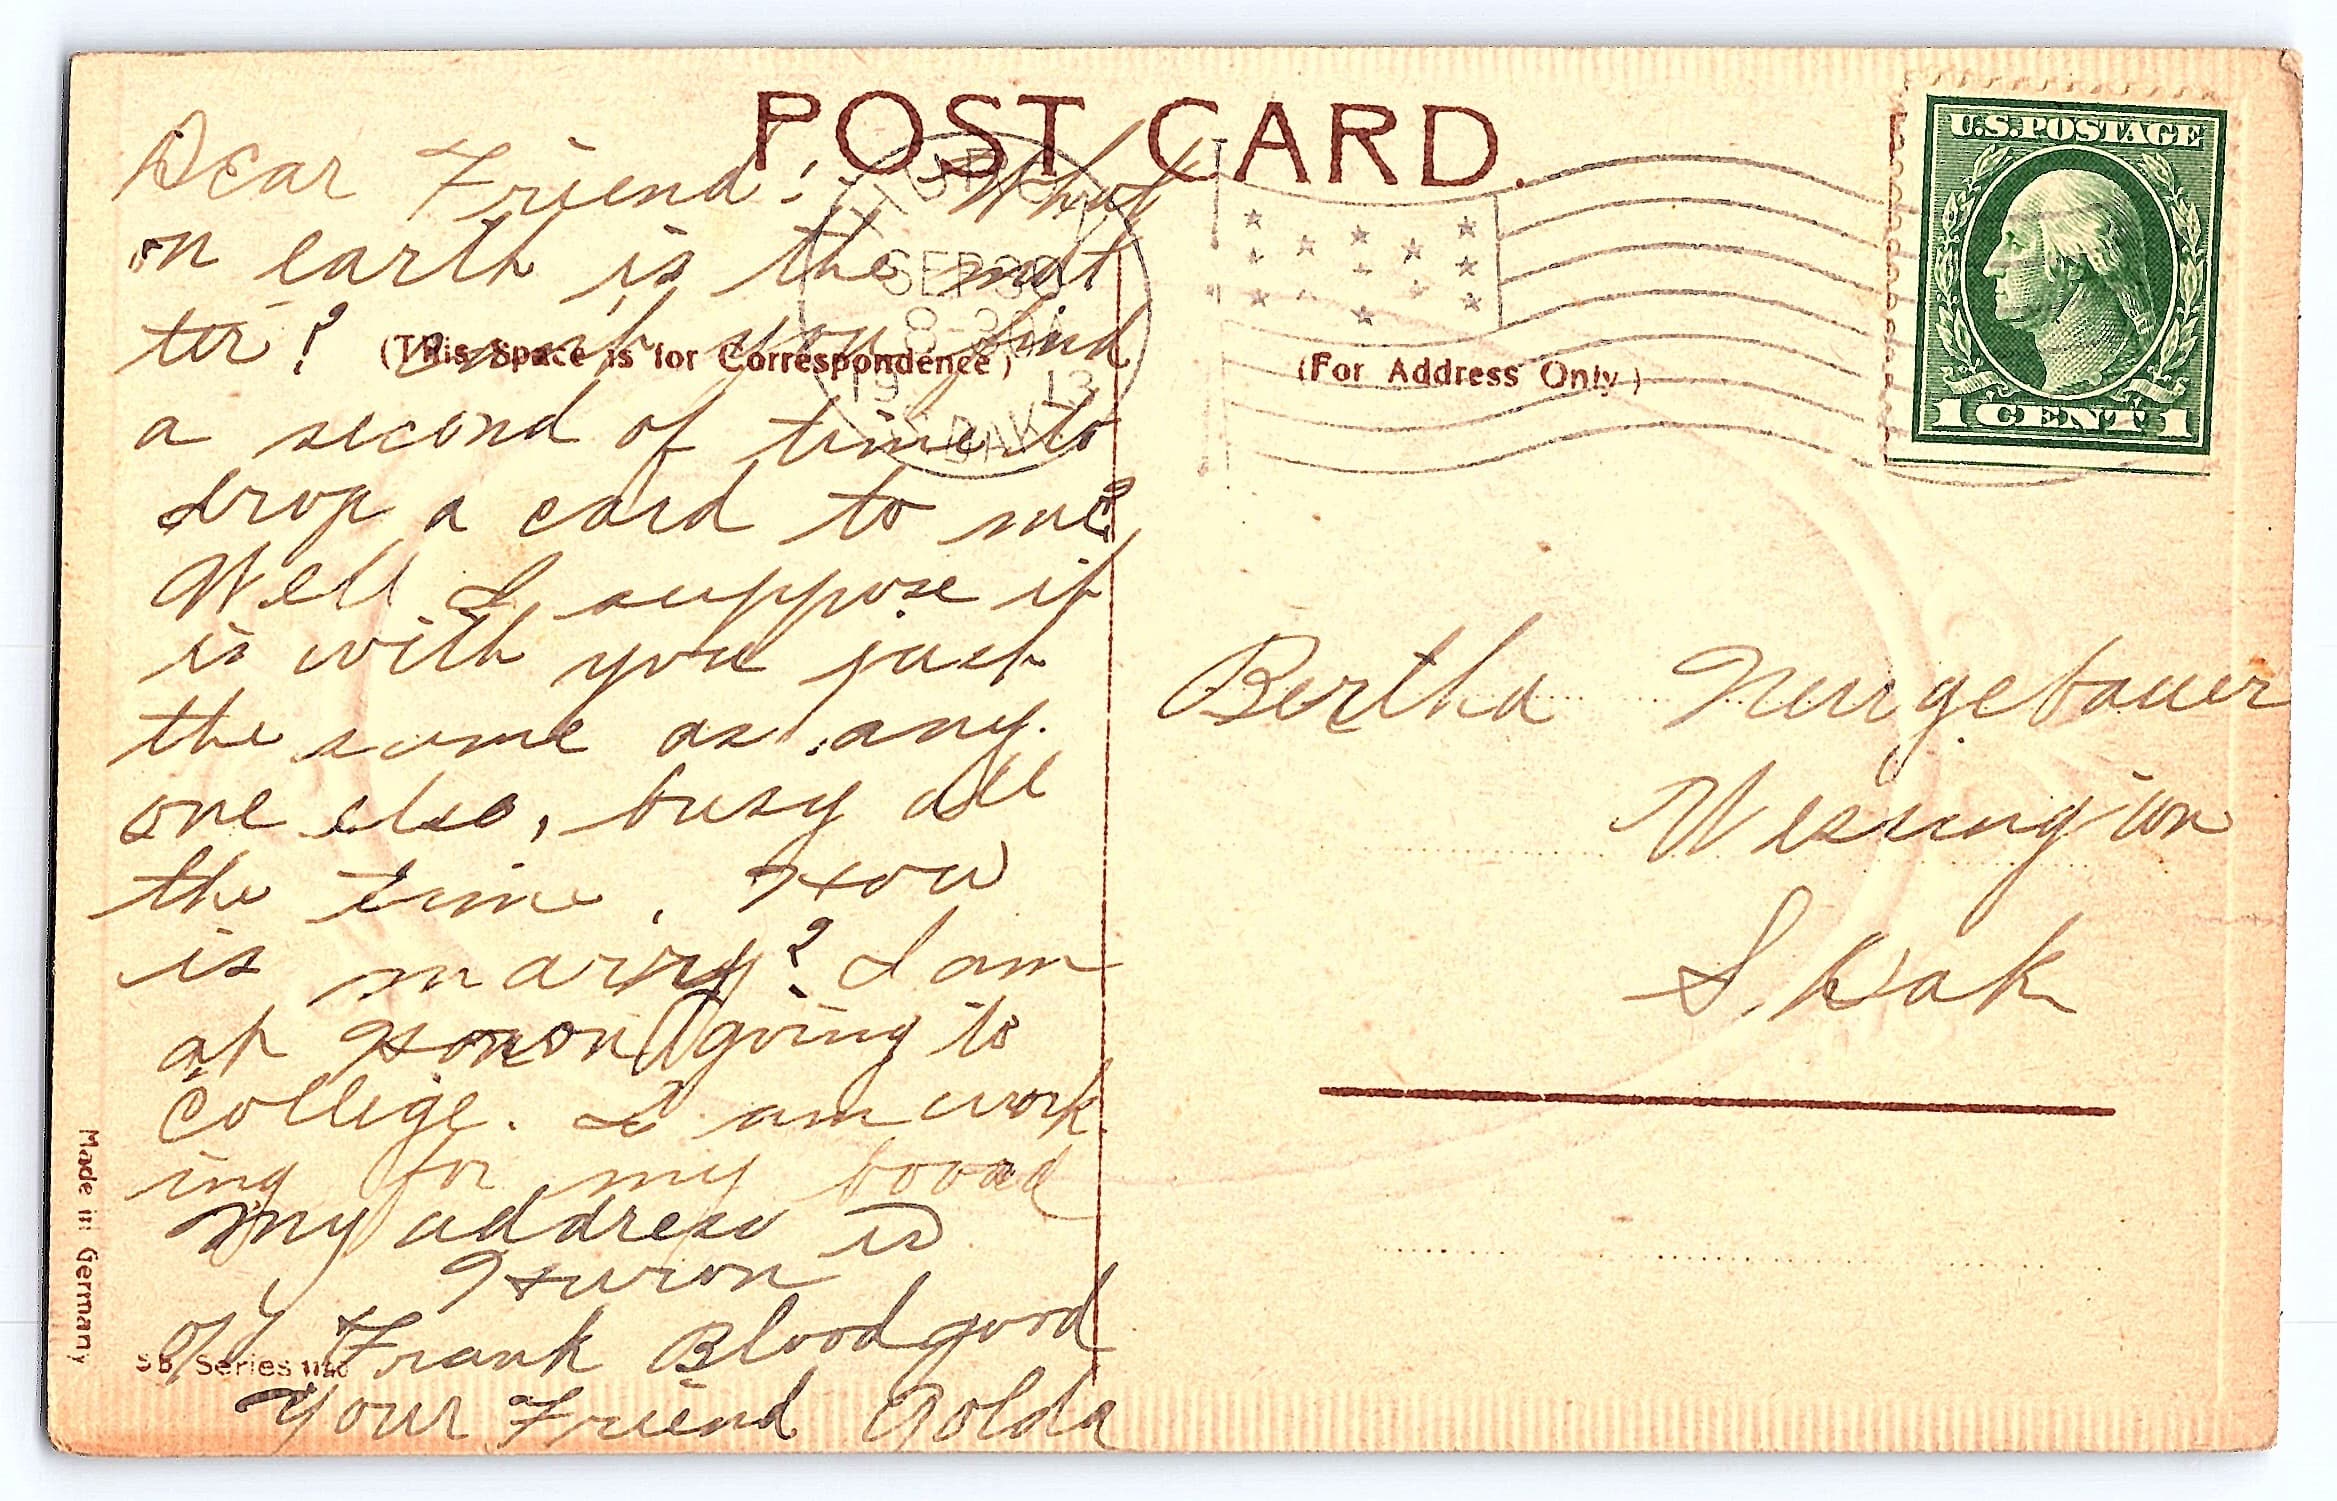 POST CARD.
U.S.POSTAGE
1 CENT 1
HURON
SEP 30
8-30A
1913
S.DAK.
(This Space is for Correspondence)
(For Address Only)
Dear Friend: What
on earth is the mat
ter? Can't you find
a second of time to
drop a card to me?
Well I suppose it
is with you just
the same as any.
one else, busy all
the time. How
is marry? I am
at Horon going to
College. I am work.
ing for my board
My address is
Huron
% Frank Bloodgood
Your Friend Golda
Bertha Neugebauer
Wessington
S. Dak
Made in Germany
SB Series